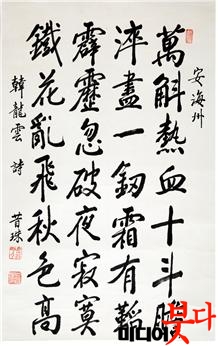 安海州
萬斛熱血十斗膽
淬盡一釼霜有韜
霹靂忽破夜寂寞
鐵花亂飛秋色高
韓龍雲 詩 昔珠
미디어붓다